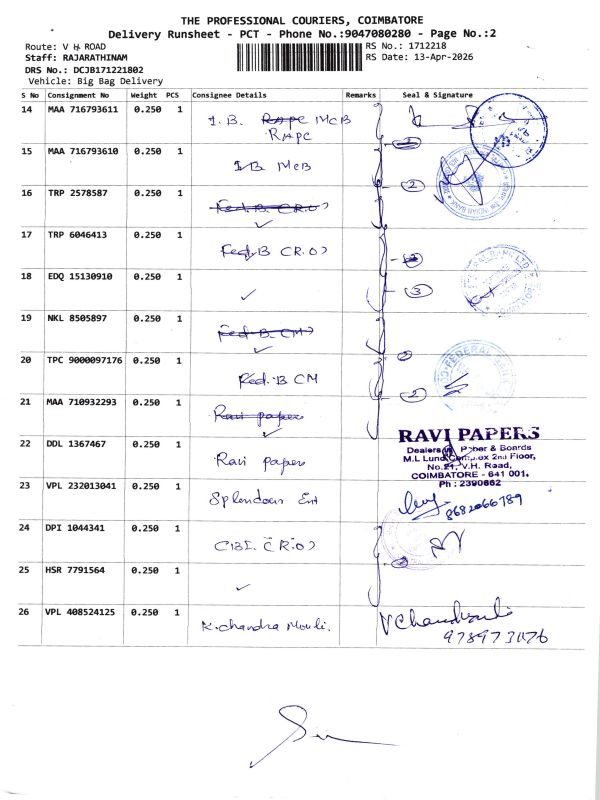 THE PROFESSIONAL COURIERS, COIMBATORE
Delivery Runsheet - PCT - Phone No.:9047080280 - Page No.:2
Route: V H ROAD
RS No.: 1712218
Staff: RAJARATHINAM
RS Date: 13-Apr-2026
DRS No.: DCJB171221802
Vehicle: Big Bag Delivery
S No Consignment No Weight PCS Consignee Details Remarks Seal & Signature
14 MAA 716793611 0.250 1 I.B. RAPC MCB
RAPC
15 MAA 716793610 0.250 1 IB MCB
2
16 TRP 2578587 0.250 1 Fed.B CR.O ✓
17 TRP 6046413 0.250 1 Fed.B CR.O
18 EDQ 15130910 0.250 1 ✓ 3
19 NKL 8505897 0.250 1 Fed.B CM ✓
20 TPC 9000097176 0.250 1 Fed.B CM
2
21 MAA 710932293 0.250 1 Ravi papers ✓
RAVI PAPERS
Dealers in Paper & Boards
M.L Lund Complex 2nd Floor,
No.21, V.H. Road,
COIMBATORE - 641 001.
Ph : 2390662
22 DDL 1367467 0.250 1 Ravi papers
23 VPL 232013041 0.250 1 Splendour Ent
8682066789
24 DPI 1044341 0.250 1 CBI. CR.O
25 HSR 7791564 0.250 1 ✓
26 VPL 408524125 0.250 1 K.chandra Mouli.